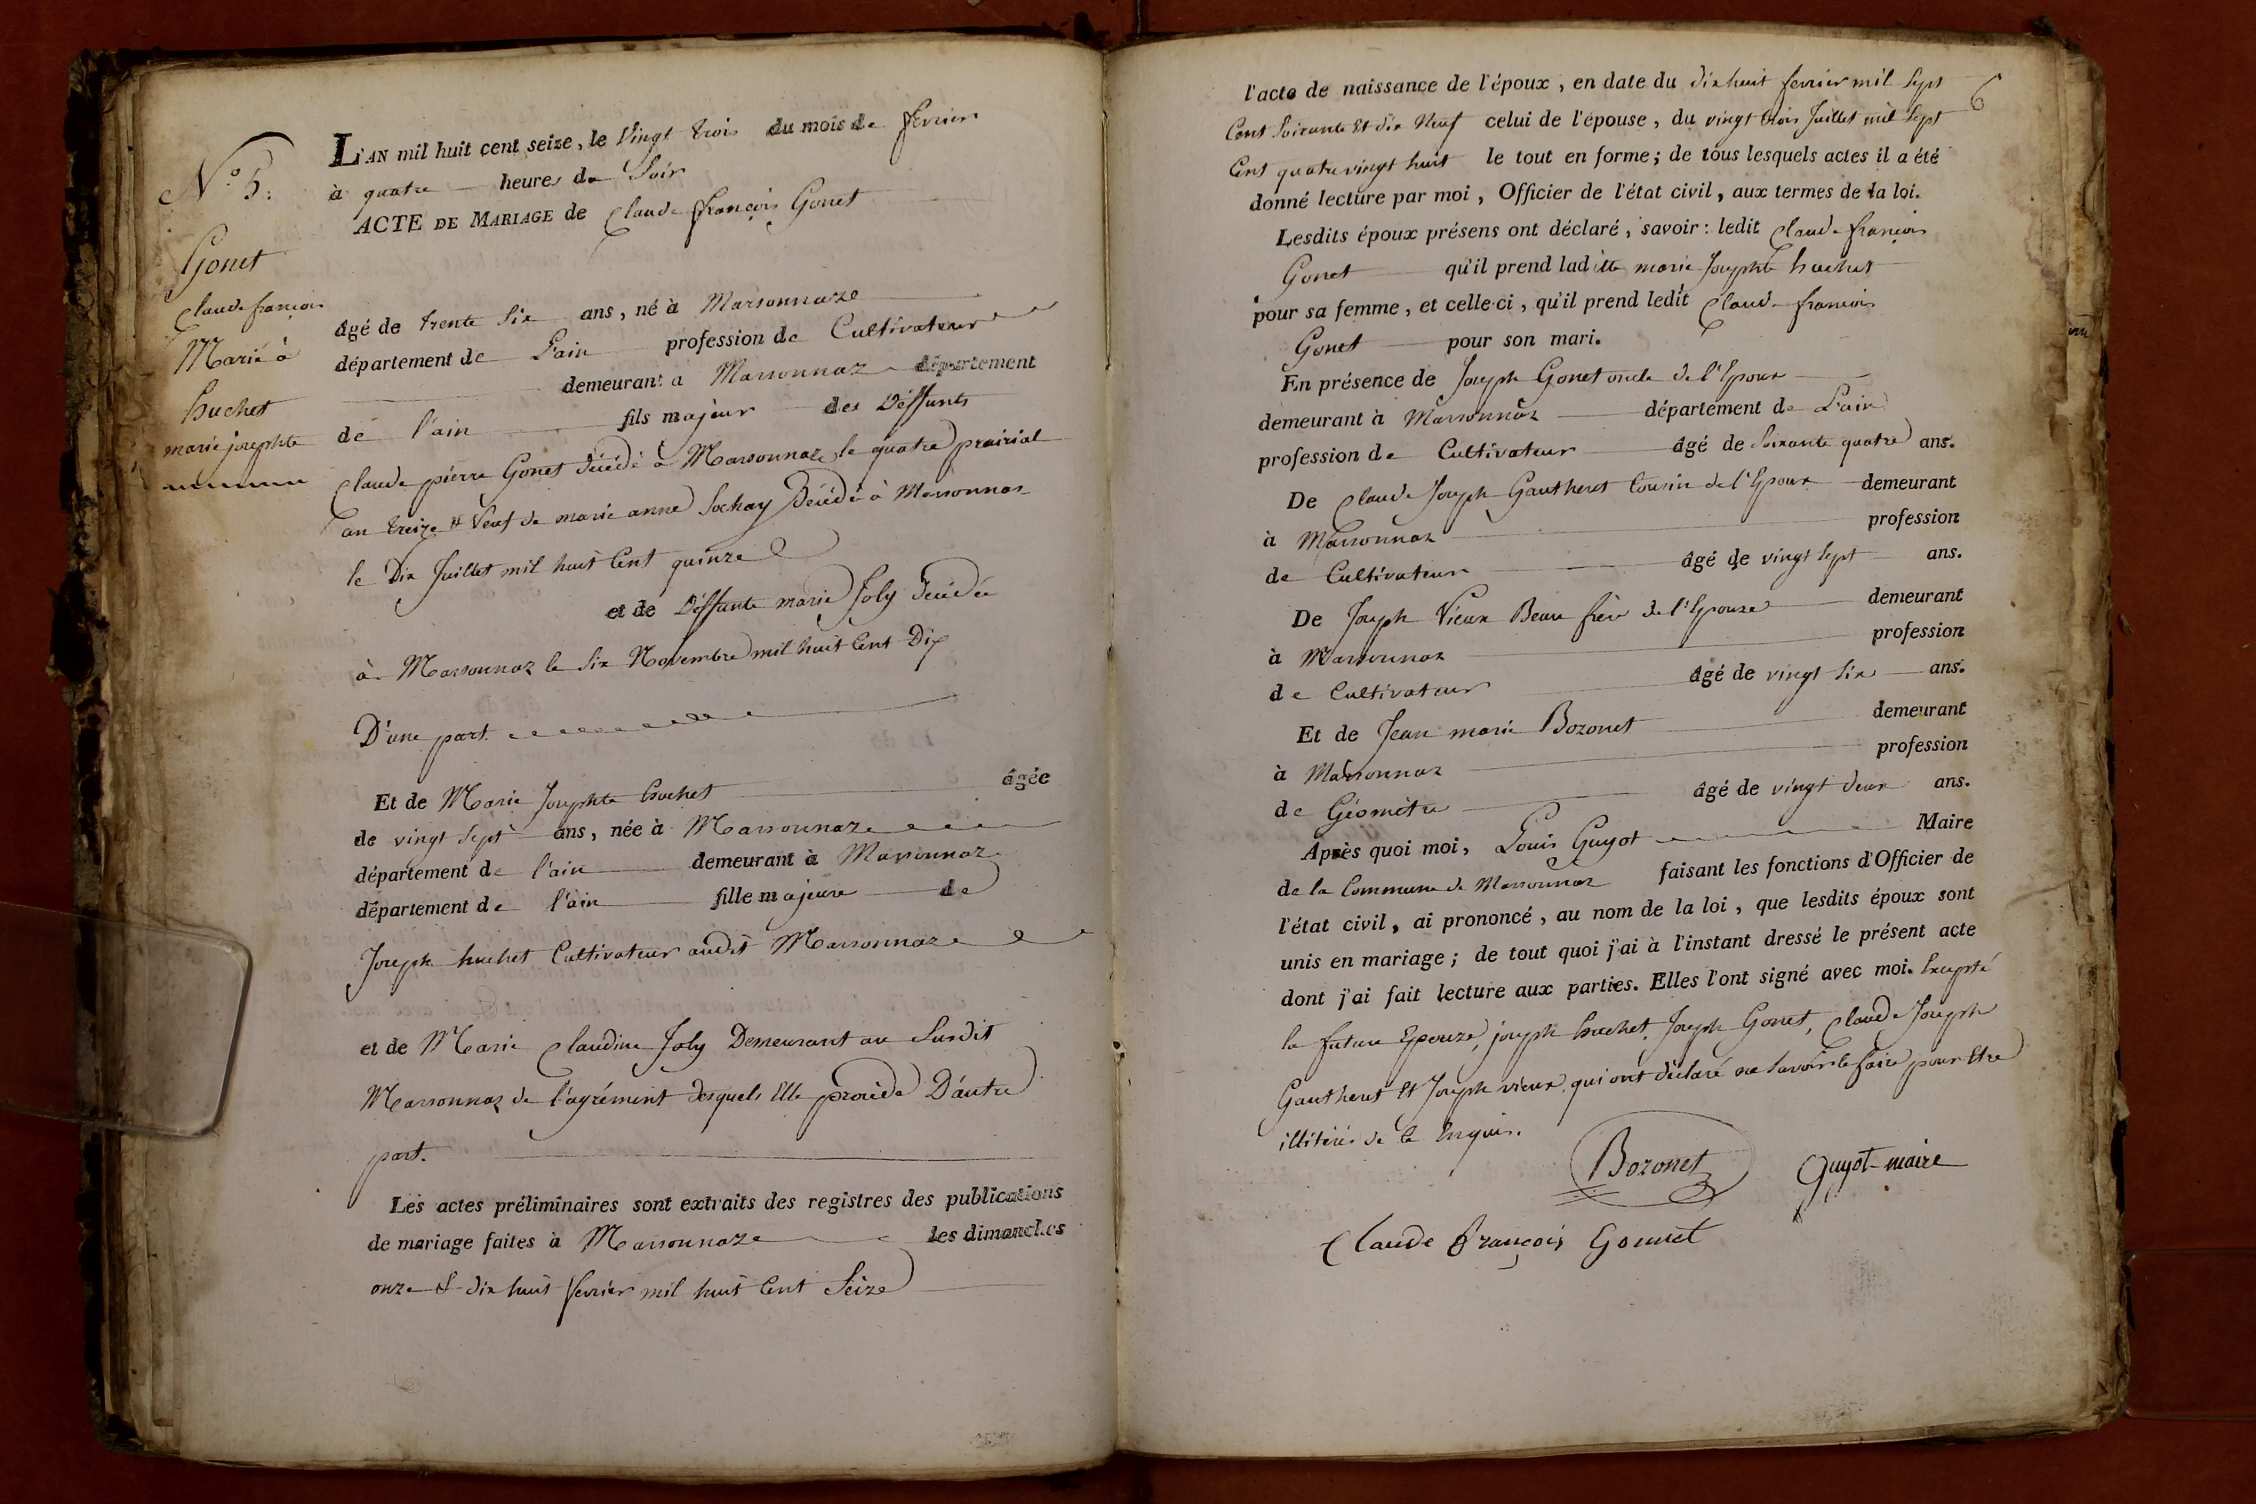 N.o 5.
Gonet
Claude françois
Marié à
huchet
marie josephte
L'AN mil huit cent seize, le Vingt trois du mois de fevrier
à quatre heures du Soir
ACTE DE MARIAGE de Claude françois Gonet
âgé de trente Six ans, né à Marsonnaz
département de L'ain profession de Cultivateur
demeurant a Marsonnaz département
de l'ain fils majeur des Déffunts
Claude pierre Gonet décédé à Marsonnaz le quatre prairial
an treize # Veuf de marie anne Sochay Décédée à Marsonnaz
le Dix Juillet mil huit Cent quinze
et de Déffunte marie Joly Décédée
à Marsonnaz le Six Novembre mil huit Cent Dix
D'une part
Et de Marie Josephte huchet âgée
de vingt Sept ans, née à Marsonnaz
département de l'ain demeurant à Marsonnaz
département de l'ain fille majeure de
Joseph huchet Cultivateur audit Marsonnaz
et de Marie Claudine Joly Demeurant au Susdit
Marsonnaz de l'agrément desquels Elle procéde D'autre
part.
Les actes préliminaires sont extraits des registres des publications
de mariage faites à Marsonnaz les dimanches
onze & dix huit fevrier mil huit Cent Seize
6
l'acte de naissance de l'époux, en date du dix huit fevrier mil Sept
Cent Soixante Et dix Neuf celui de l'épouse, du vingt trois Juillet mil Sept
Cent quatre vingt huit le tout en forme; de tous lesquels actes il a été
donné lecture par moi, Officier de l'état civil, aux termes de la loi.
Lesdits époux présens ont déclaré, savoir: ledit Claude françois
Gonet qu'il prend ladite marie Josephte huchet
pour sa femme, et celle-ci, qu'il prend ledit Claude françois
Gonet pour son mari.
En présence de Joseph Gonet oncle de l'Epoux
demeurant à Marsonnaz département de L'ain
profession de Cultivateur âgé de Soixante quatre ans.
De Claude Joseph Gautheret Cousin de l'Epoux demeurant
à Marsonnaz profession
de Cultivateur âgé de vingt Sept ans.
De Joseph Vieux Beau frère de l'Epouze demeurant
à Marsonnaz profession
de Cultivateur âgé de vingt Six ans.
Et de Jean marie Bozonet demeurant
à Marsonnaz profession
de Géomètre âgé de vingt deux ans.
Après quoi moi, Louis Guyot Maire
de la Commune de Marsonnaz faisant les fonctions d'Officier de
l'état civil, ai prononcé, au nom de la loi, que lesdits époux sont
unis en mariage; de tout quoi j'ai à l'instant dressé le présent acte
dont j'ai fait lecture aux parties. Elles l'ont signé avec moi. Excepté
la future Epouze, joseph huchet, Joseph Gonet, Claude Joseph
Gautheret Et Joseph vieux qui ont déclaré ne Savoir le faire pour Etre
illitérés de ce Enquis.
Bozonet
Guyot maire
Claude François Gonnet